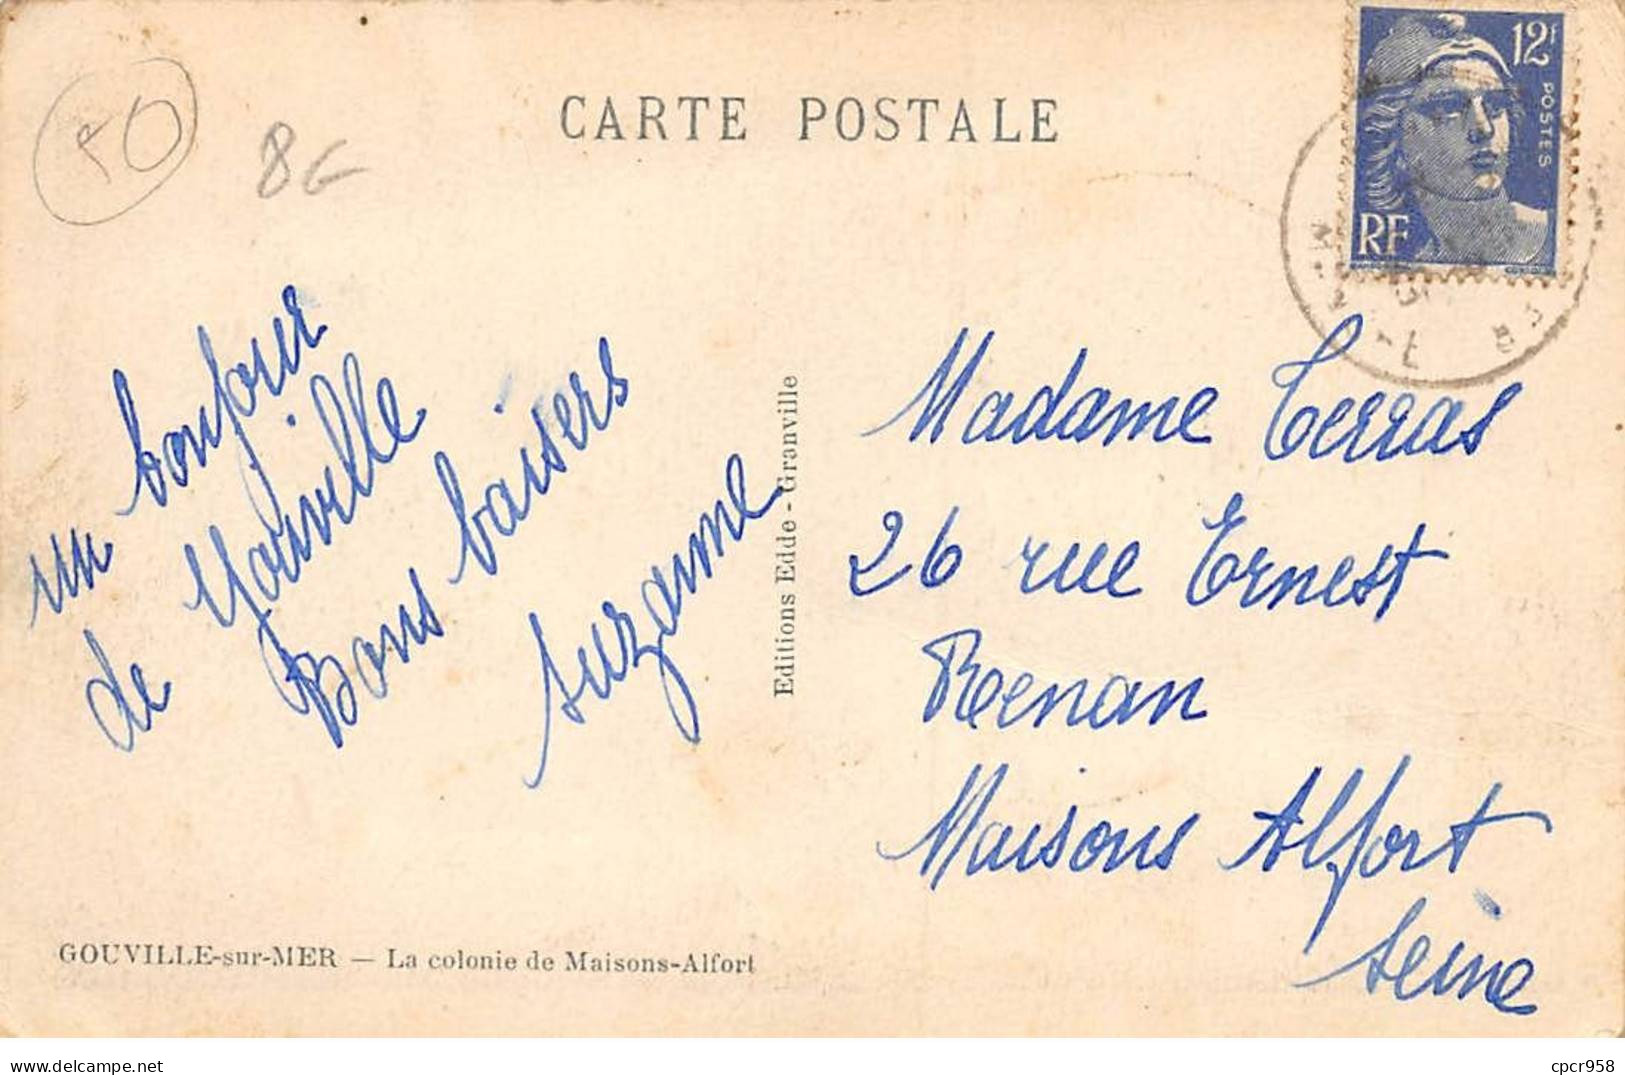 50
8€
CARTE POSTALE
12F
POSTES
RF
un bonjour
de Gouville
Bons baisers
Suzanne
Editions Edde - Granville
Madame Terras
26 rue Ernest
Renan
Maisons Alfort
Seine
GOUVILLE-sur-MER — La colonie de Maisons-Alfort
cpcr958